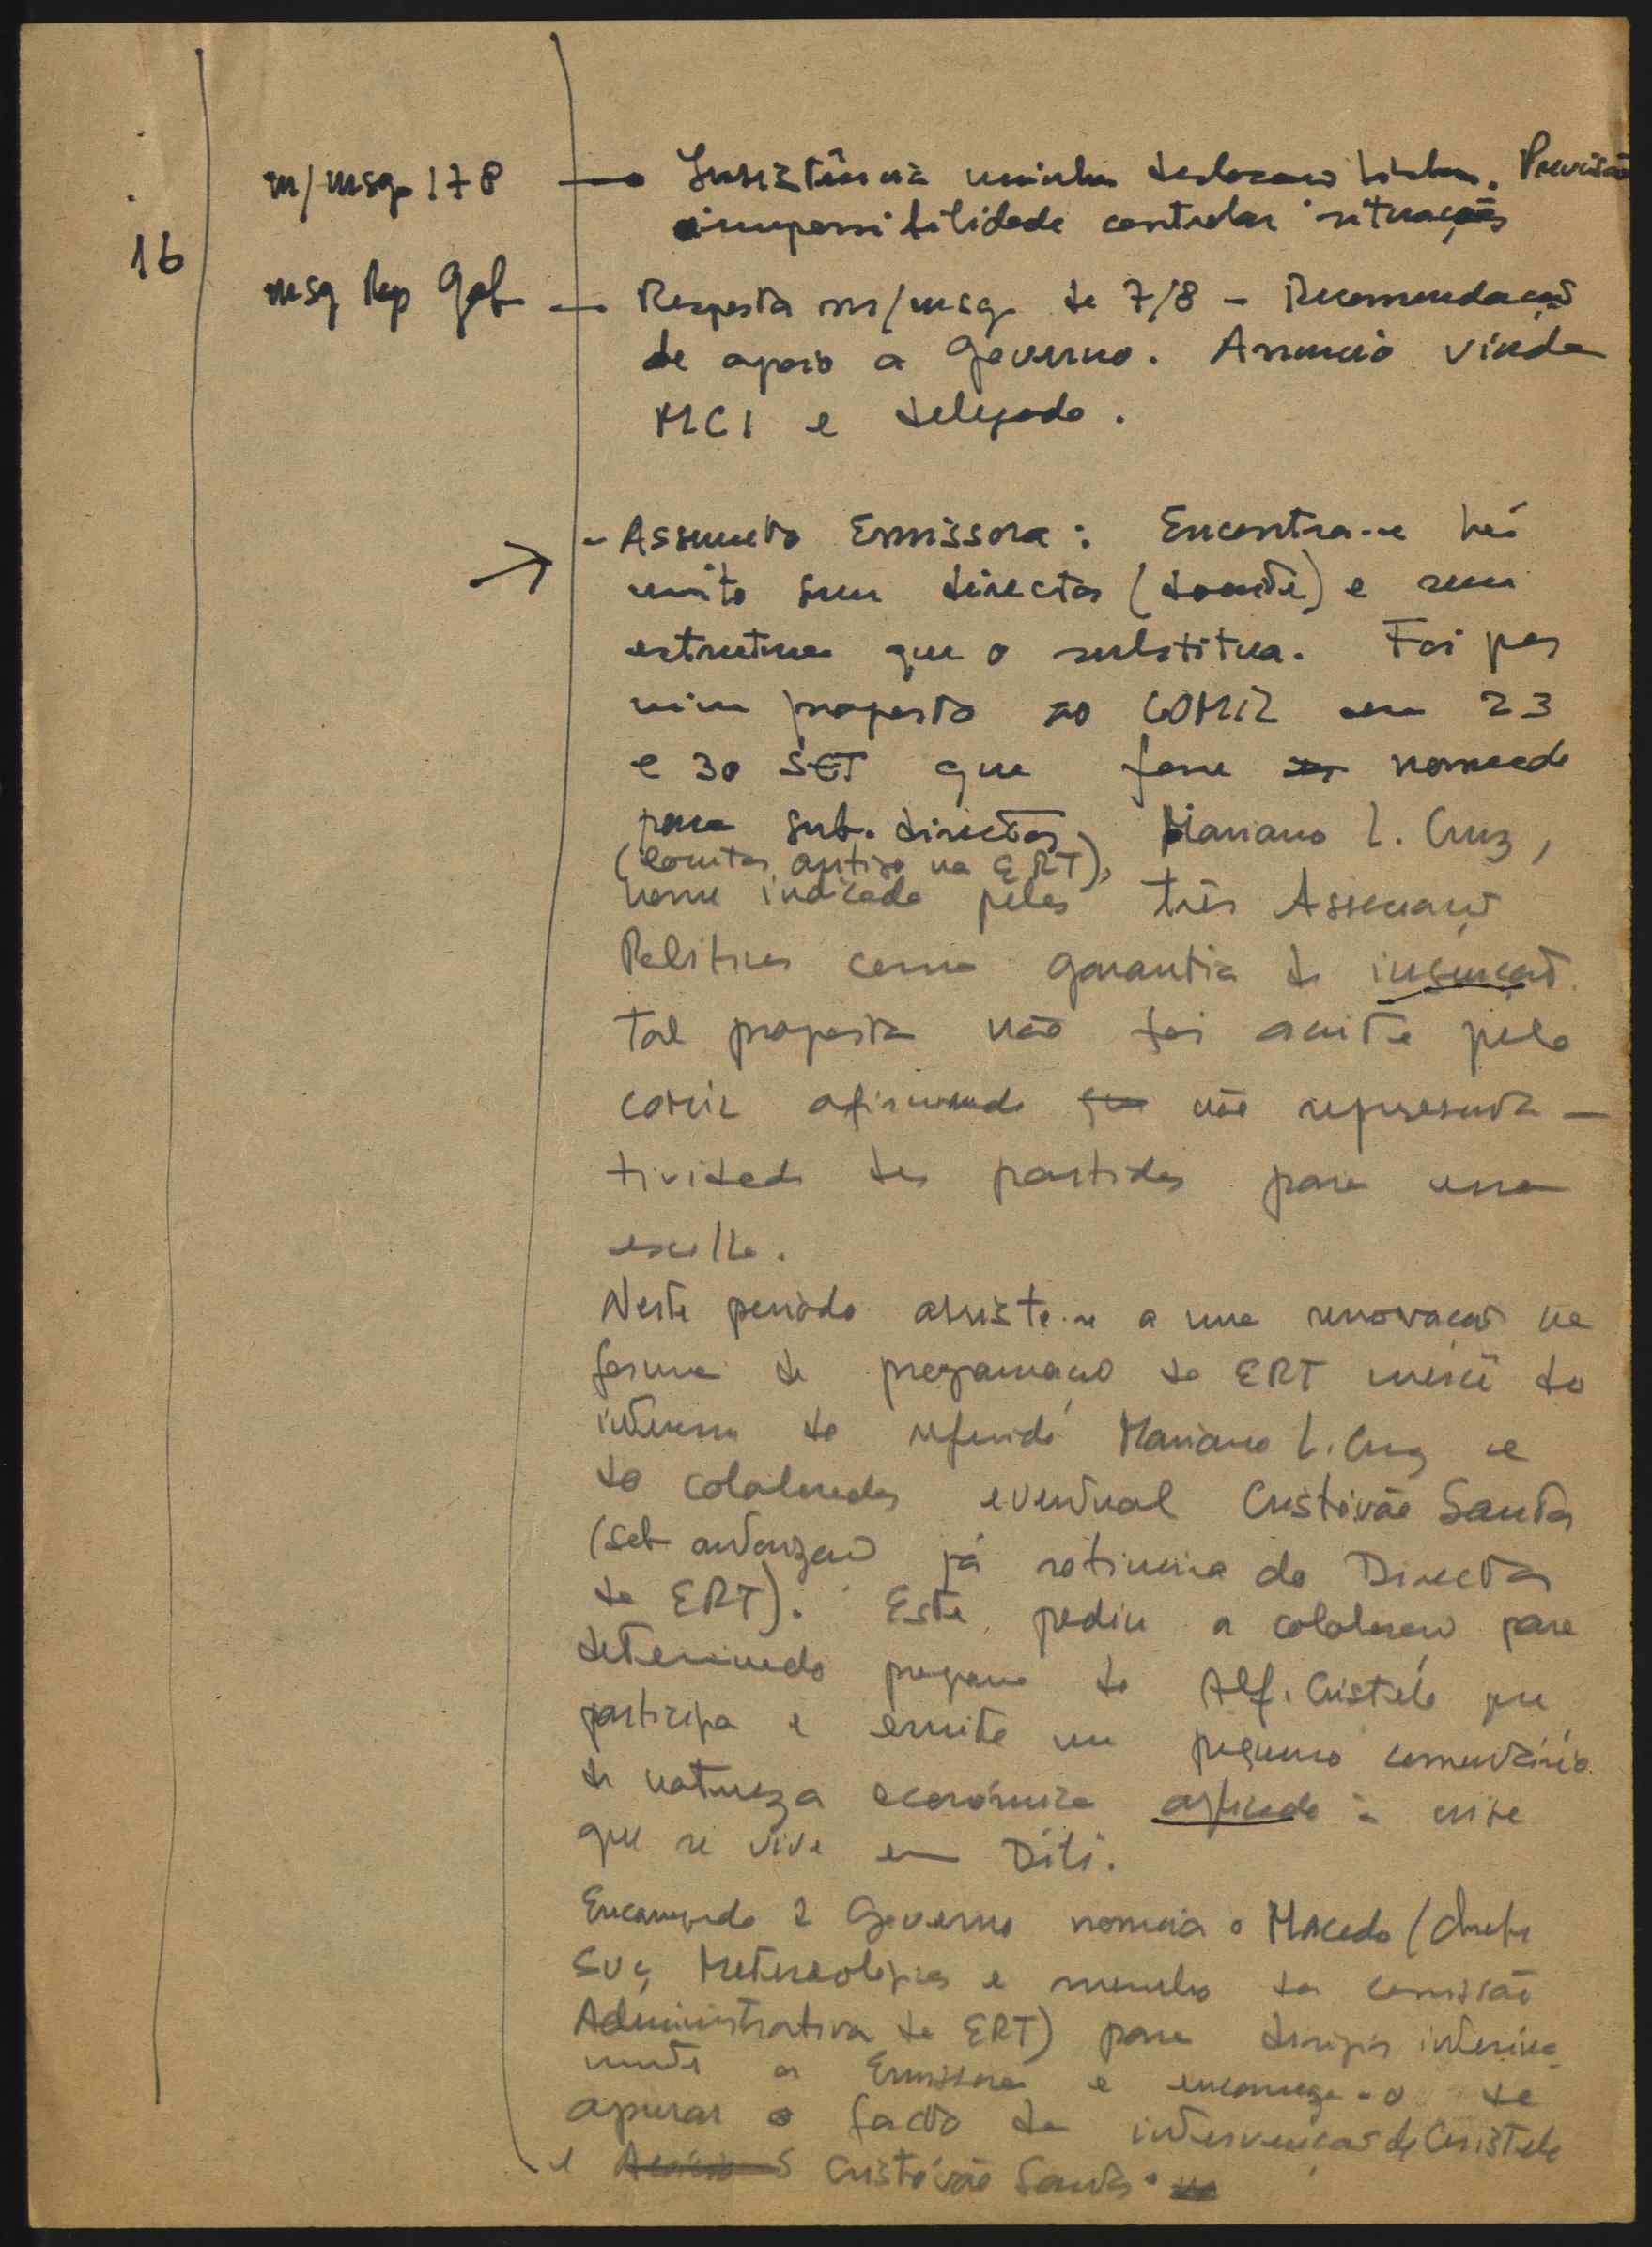 m/msg. 178 — Insistência minha deslocação Lisboa. Previsão
impossibilidade controlar situação
16
msg Rep Gab — Resposta m/msg. de 7/8 - Recomendação
de apoio a Governo. Anuncio vinda
MCI e delegado.
→ - Assunto Emissora: Encontra-se há
muito sem director (doente) e sem
estrutura que o substitua. Foi por
mim proposto ao COMIL em 23
e 30 SET que fosse nomeado
para sub-director, Mariano L. Cruz,
(locutor antigo na ERT),
nome indicado pelas três Associações
Politicas como garantia de isenção.
Tal proposta não foi aceite pelo
COMIL afirmando que não representa-
tividade dos partidos para essa
escolha.
Neste período assiste-se a uma renovação na
forma de programação da ERT mercê do
interesse do referido Mariano L. Cruz e
do colaborador eventual Cristóvão Santos
(sob autorização já rotineira do Director
da ERT). Este pediu a colaboração para
determinado programa do Alf. Cristelo que
participa e emite um pequeno comentário
de natureza económica aplicado à crise
que se vive em Dili.
Encarregado de Governo nomeia o Macedo (chefe
Svç Metereológicos e membro da comissão
Administrativa da ERT) para dirigir interina-
mente a Emissora e encarrega-o de
apurar o facto da intervenção de Cristelo
e Cristóvão Santos.